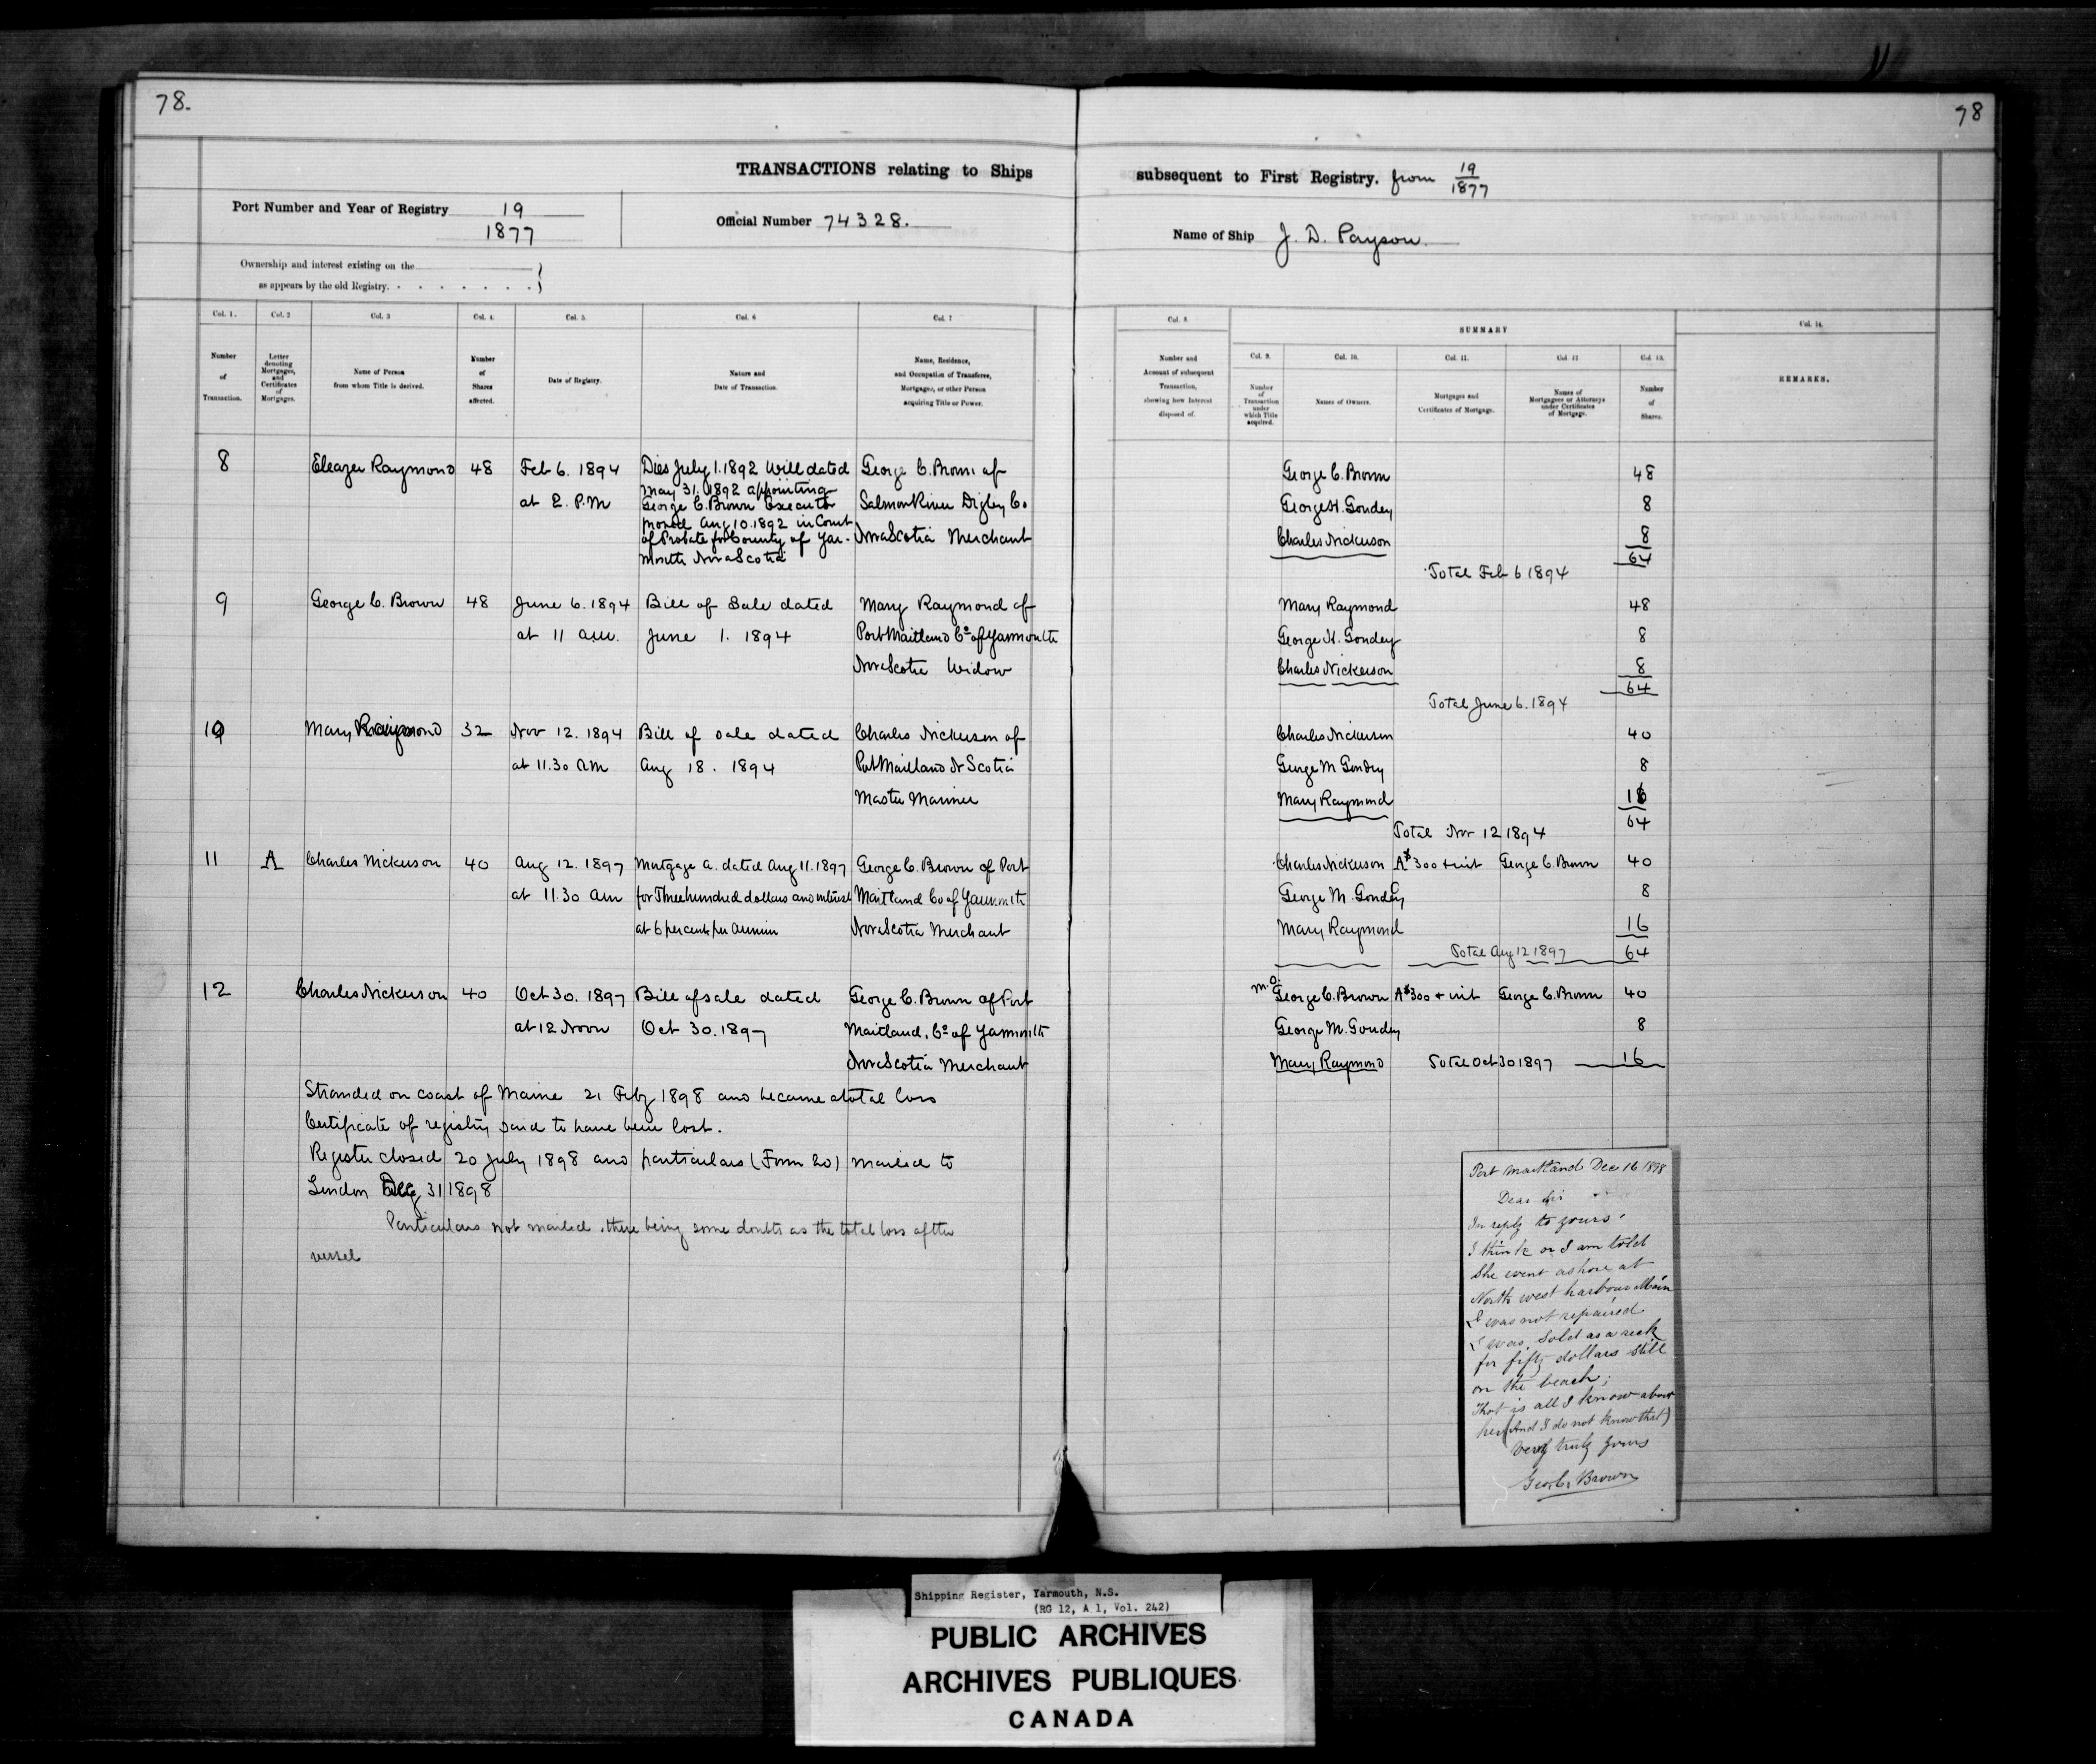 78.
78
TRANSACTIONS relating to Ships
subsequent to First Registry. from 19/1877
Port Number and Year of Registry 19
1877
Official Number 74328.
Name of Ship J. D. Payson.
Ownership and interest existing on the
as appears by the old Registry.
Col. 1.
Number
of
Transaction.
Col. 2
Letter
denoting
Mortgages,
and
Certificates
of
Mortgages.
Col. 3
Name of Person
from whom Title is derived.
Col. 4.
Number
of
Shares
affected.
Col. 5.
Date of Registry.
Col. 6
Nature and
Date of Transaction.
Col. 7
Name, Residence,
and Occupation of Transferee,
Mortgagee, or other Person
acquiring Title or Power.
Col. 8.
Number and
Account of subsequent
Transaction,
showing how Interest
disposed of.
SUMMARY
Col. 9.
Number
of
Transaction
under
which Title
acquired.
Col. 10.
Names of Owners.
Col. 11.
Mortgages and
Certificates of Mortgage.
Col. 12
Names of
Mortgagees or Attorneys
under Certificates
of Mortgage.
Col. 13.
Number
of
Shares.
Col. 14.
REMARKS.
8
Eleazer Raymond
48
Feb 6. 1894
at 2. P.M
Dies July 1. 1892 Will dated
May 31. 1892 appointing
George C. Brown Executor
proved Aug 10. 1892 in Court
of Probate for County of Yar-
mouth Nova Scotia
George C. Brown of
Salmon River Digby Co
Nova Scotia Merchant
George C. Brown 48
George H. Goudey 8
Charles Nickerson 8
64
Total Feb 6 1894
9
George C. Brown
48
June 6. 1894
at 11 a.m.
Bill of Sale dated
June 1. 1894
Mary Raymond of
Port Maitland Co of Yarmouth
Nova Scotia Widow
Mary Raymond 48
George H. Goudey 8
Charles Nickerson 8
64
Total June 6. 1894
10
Mary Raymond
32
Nov 12. 1894
at 11.30 AM
Bill of Sale dated
Aug 18. 1894
Charles Nickerson of
Port Maitland N Scotia
Master Mariner
Charles Nickerson 40
George M Goudey 8
Mary Raymond 16
64
Total Nov 12 1894
11
A
Charles Nickerson
40
Aug 12. 1897
at 11.30 am
Mortgage A. dated Aug 11. 1897
for Three hundred dollars and interest
at 6 per cent per annum
George C. Brown of Port
Maitland Co of Yarmouth
Nova Scotia Merchant
Charles Nickerson A $300 + int George C. Brown 40
George M. Goudey 8
Mary Raymond 16
Total Aug 12 1897 64
12
Charles Nickerson
40
Oct 30. 1897
at 12 Noon
Bill of sale dated
Oct 30. 1897
George C. Brown of Port
Maitland, Co of Yarmouth
Nova Scotia Merchant
M.O. George C. Brown A $300 + int George C. Brown 40
George M. Goudey 8
Mary Raymond Total Oct 30 1897 16
Stranded on coast of Maine 21 Feby 1898 and became a total loss
Certificate of registry said to have been lost.
Register closed 20 July 1898 and particulars (Form 20) mailed to
London 31 1898
Particulars not mailed, there being some doubts as the total loss of the
vessel
Port Maitland Dec 16 1898
Dear Sir
In reply to yours
I think or I am told
she went ashore at
North west harbour Main
& was not repaired
& was sold as a reck
for fifty dollars still
on the beach;
That is all I know about
her (And I do not know that)
Very truly yours
Geo. C. Brown
Shipping Register, Yarmouth, N.S.
(RG 12, A 1, Vol. 242)
PUBLIC ARCHIVES
ARCHIVES PUBLIQUES
CANADA